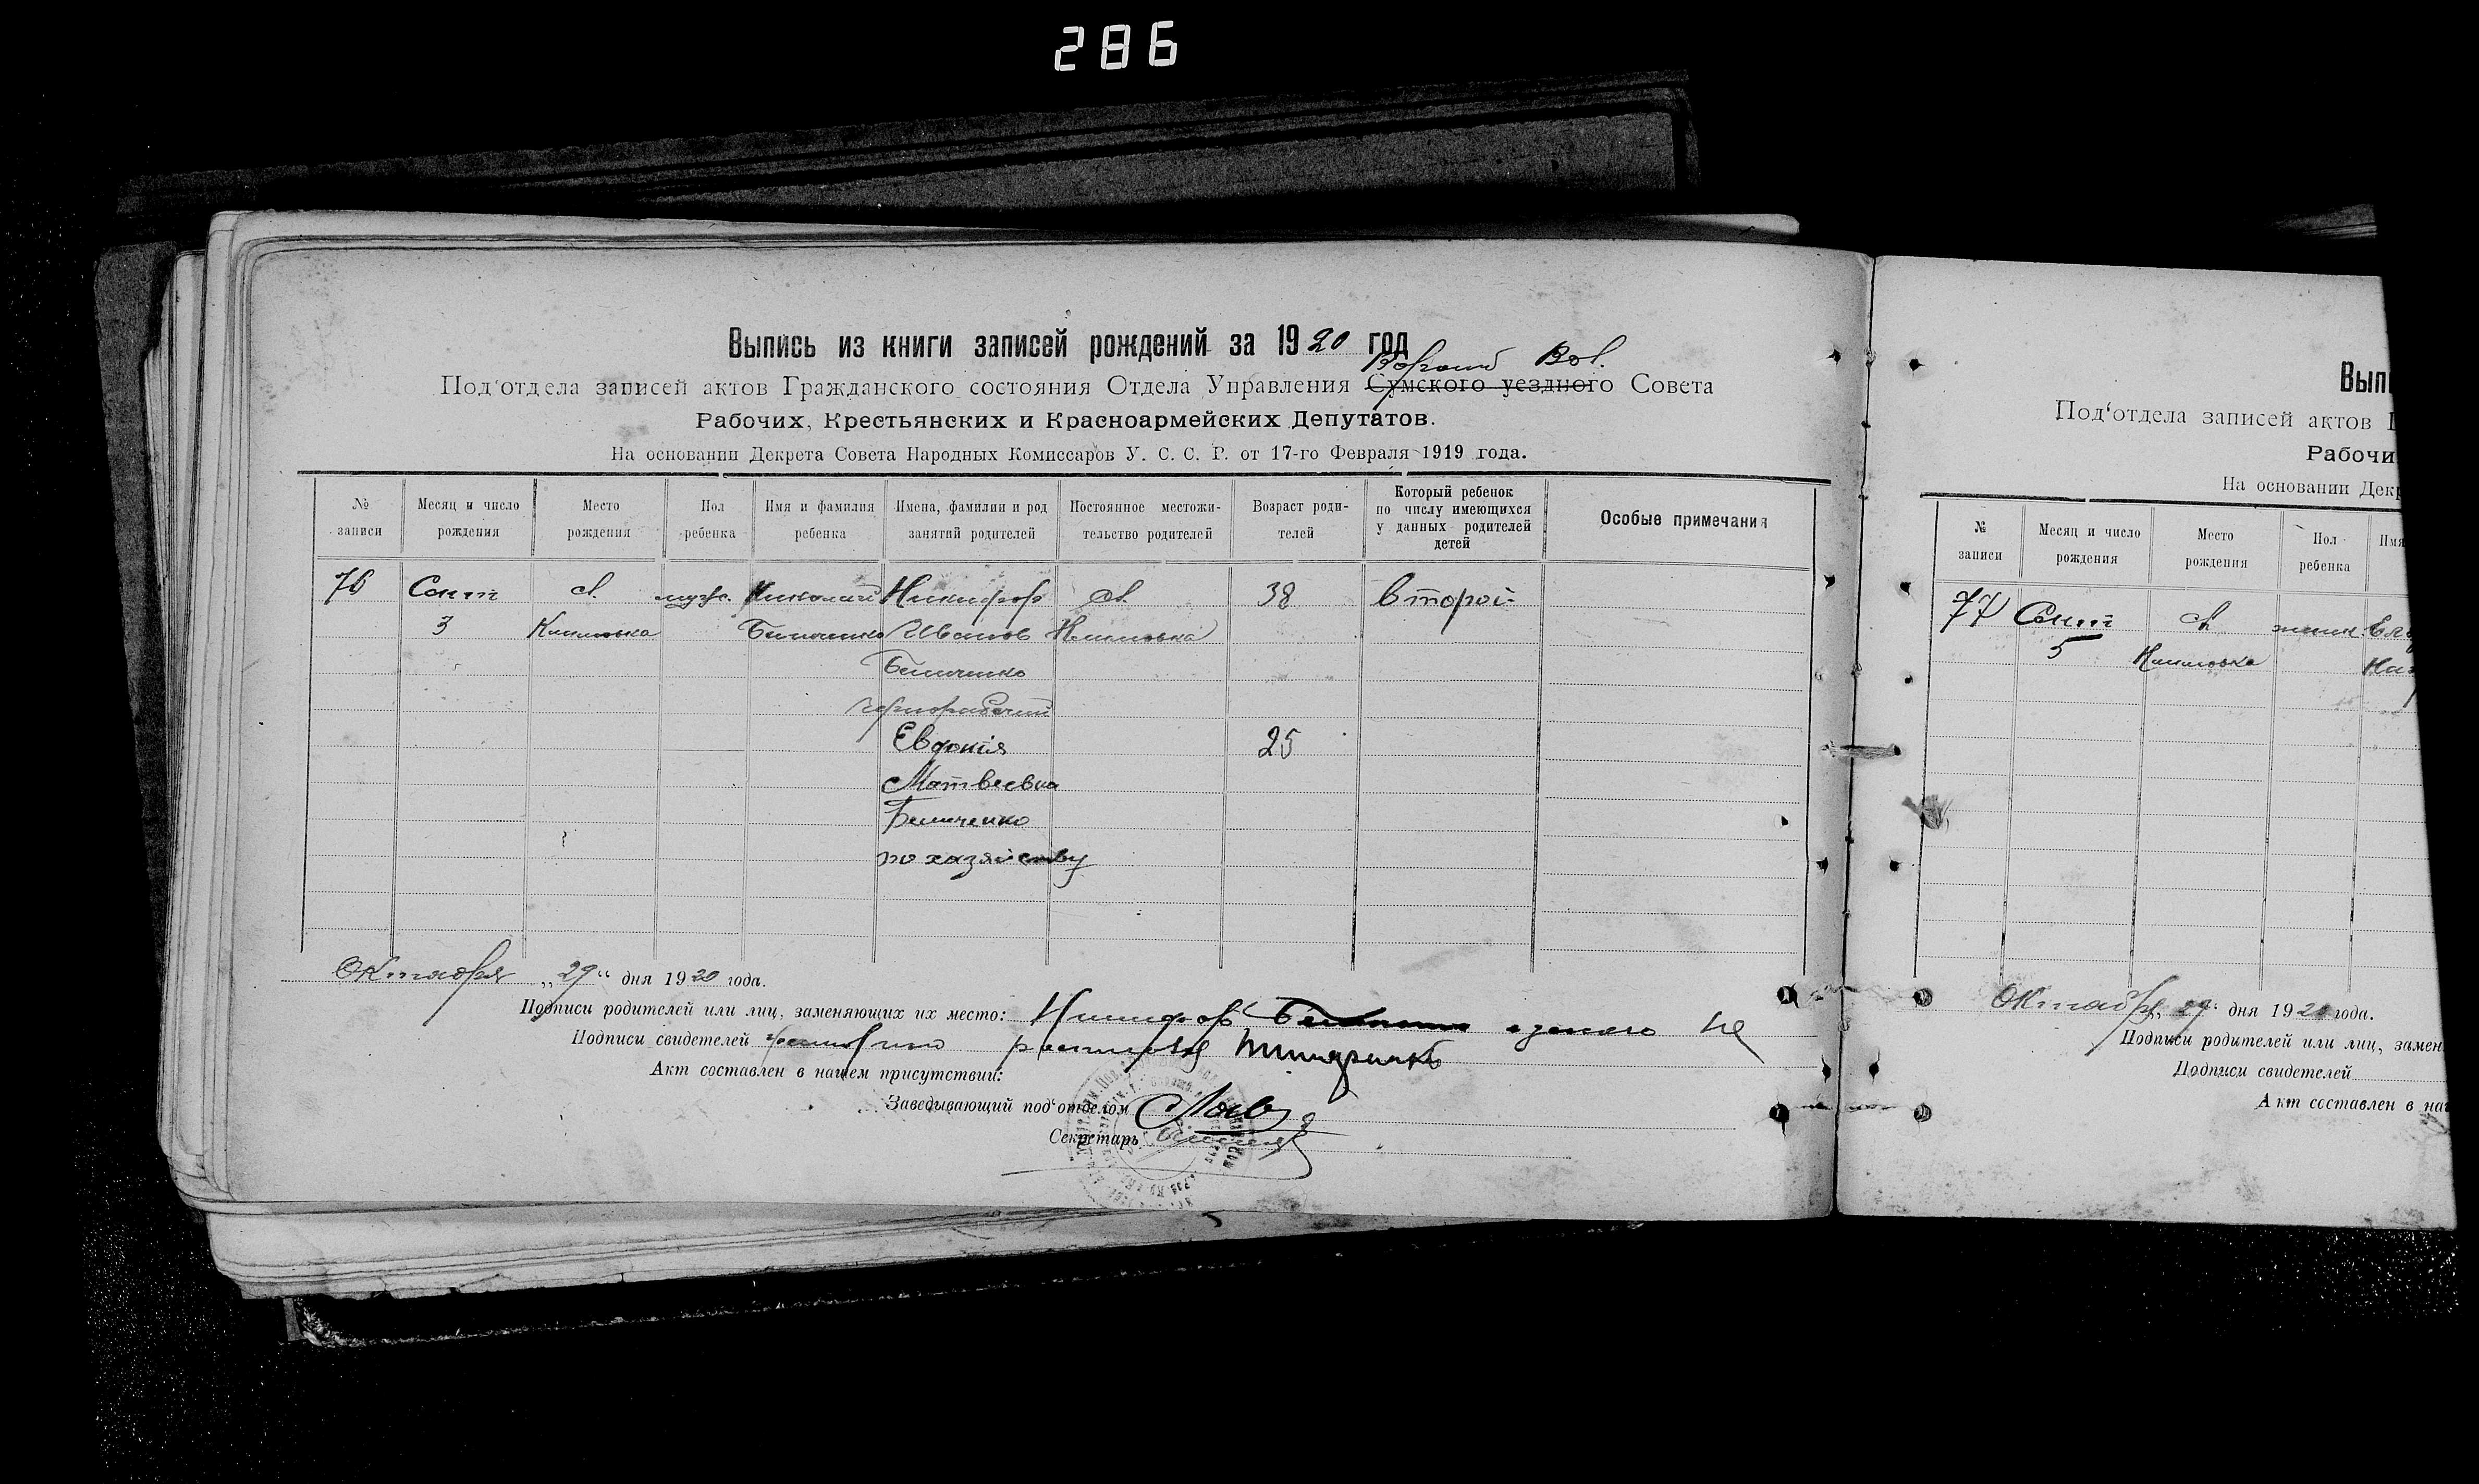 286
Выпись из книги записей рождений за 1920 год
Вол.
Под‘отдела записей актов Гражданского состояния Отдела Управления Сумского уездного Совета
Рабочих, Крестьянских и Красноармейских Депутатов.
На основании Декрета Совета Народных Комиссаров У. С. С. Р. от 17-го Февраля 1919 года.
№ записи
Месяц и число рождения
Место рождения
Пол ребенка
Имя и фамилия ребенка
Имена, фамилии и род занятий родителей
Постоянное местожительство родителей
Возраст родителей
Который ребенок по числу имеющихся у данных родителей детей
Особые примечания
76 Сент с. муж. Николай Никифор с. 38 второй
3 Иванов
чернорабочий
Евдокія 25
Матвеевна
по хазяйству
Октября „29“ дня 1920 года.
Подписи родителей или лиц, заменяющих их место: Никифор не
Подписи свидетелей
Акт составлен в нашем присутствии:
Заведывающий под‘отделом
Секретарь
Вып
Под‘отдела записей актов Г
Рабочи
На основании Декр
№ записи
Месяц и число рождения
Место рождения
Пол ребенка
Имя
77 Сент с. женск.
5
Октября 29“ дня 1920 года.
Подписи родителей или лиц, замен
Подписи свидетелей
Акт составлен в на